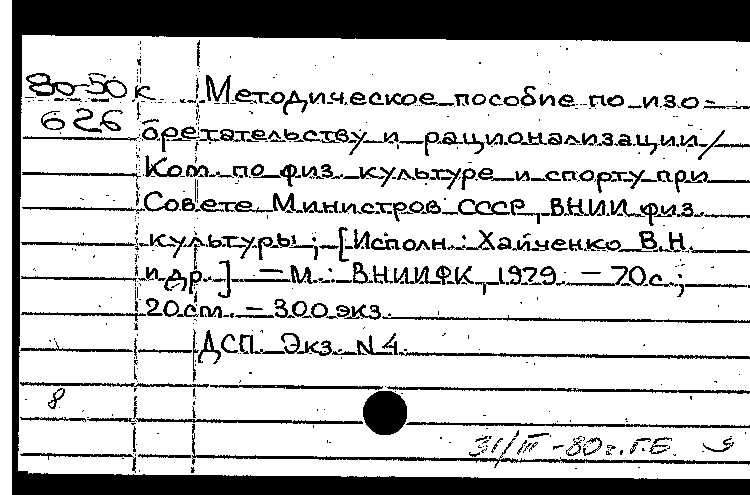 80-50к Методическое пособие по изо-
626 бретательству и рационализации/
Ком. по физ. культуре и спорту при
Совете Министров СССР, ВНИИ физ.
культуры; [Исполн.: Хайченко В.Н.
и др.] – М.: ВНИИФК, 1979. – 70с.;
20см. – 300экз.
ДСП. Экз. N 4.
8
31/III-80г. Г.Б.